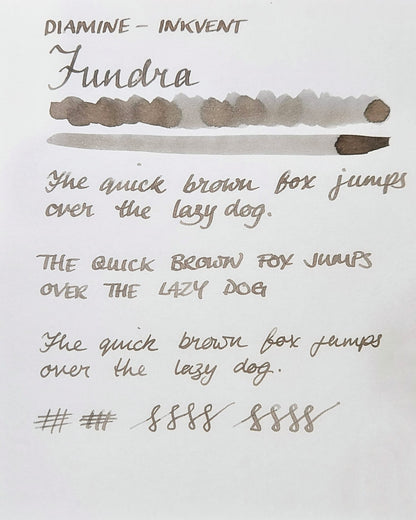 DIAMINE - INKVENT
Tundra
The quick brown fox jumps
over the lazy dog.
THE QUICK BROWN FOX JUMPS
OVER THE LAZY DOG
The quick brown fox jumps
over the lazy dog.